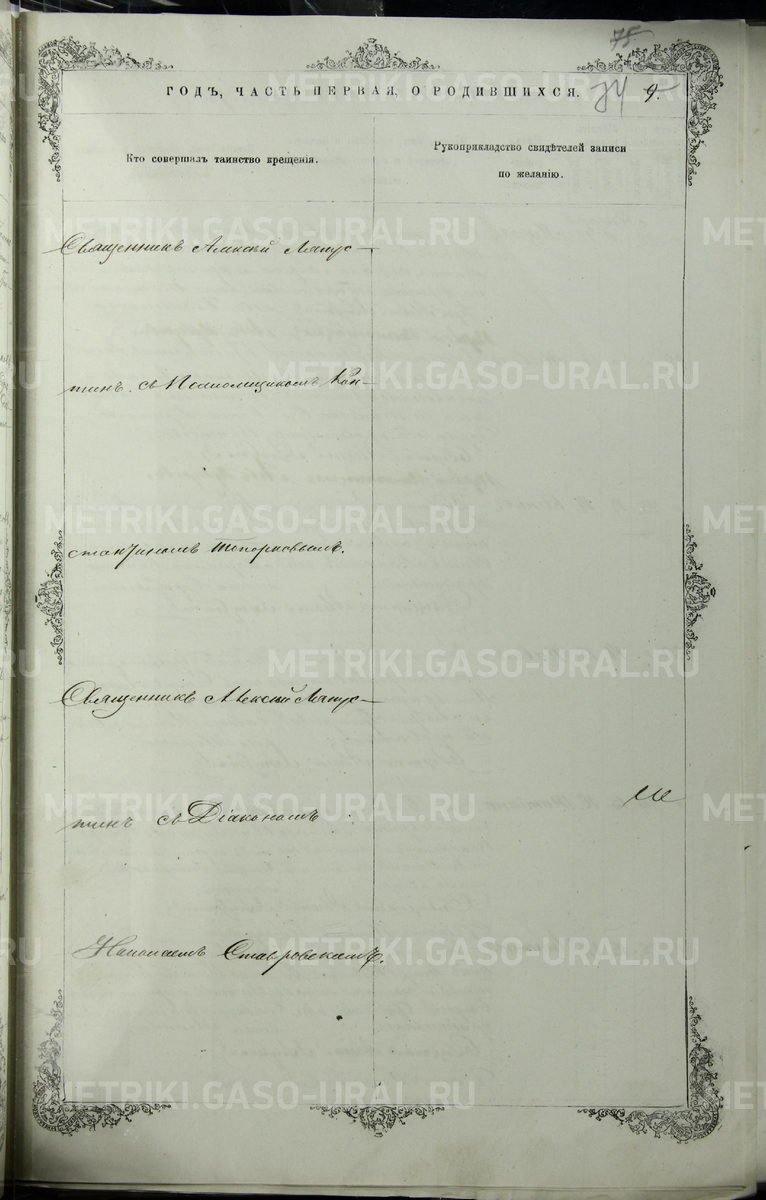 75.
ГОДЪ, ЧАСТЬ ПЕРВАЯ, О РОДИВШИХСЯ.
74
9.
Кто совершалъ таинство крещенія.
Рукоприкладство свидѣтелей записи
по желанію.
Священникъ Алексій Ляпус-
тинъ съ Псаломщикомъ Кон-
стантиномъ Топорковымъ.
Священникъ Алексій Ляпус-
тинъ съ Діакономъ
Николаемъ Ставровскимъ.
METRIKI.GASO-URAL.RU